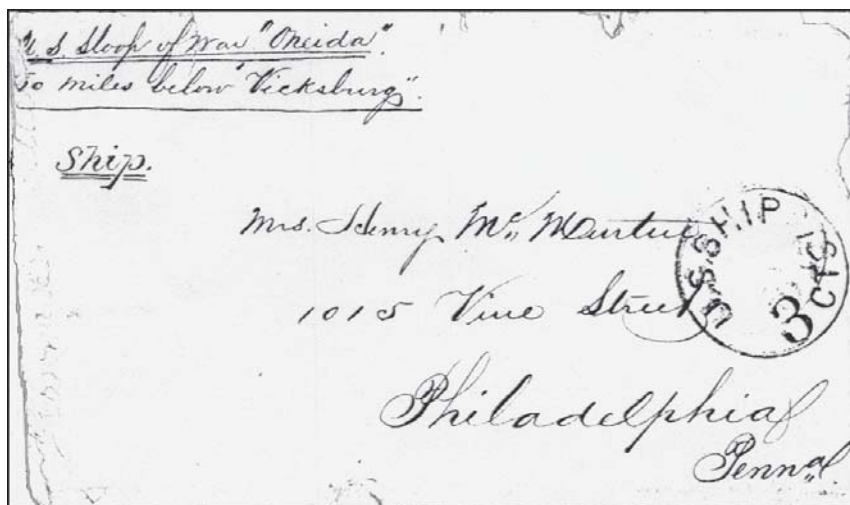 U.S. Sloop of War "Oneida".
50 miles below "Vicksburg".
Ship.
Mrs. Henry Mc
1015 Vine Street
Philadelphia
Penna.
U.S. SHIP
3 CTS